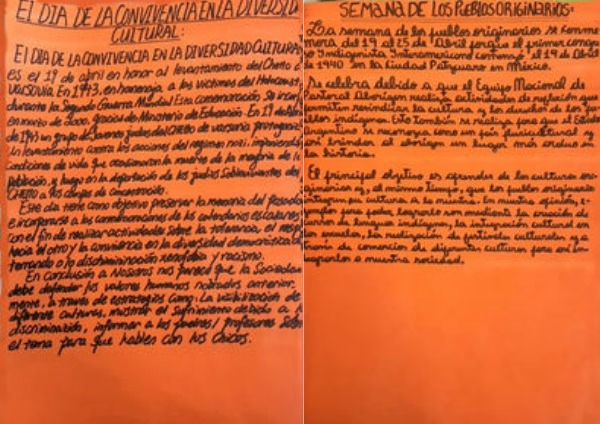 EL DIA DE LA CONVIVENCIA EN LA DIVERSID
CULTURAL:
El DIA DE LA CONVIVENCIA EN LA DIVERSIDAD CULTURAL
es el 19 de abril en honor al levantamiento del Ghetto d
varsovia En 1943, en homenaje a las victimas del Holocaus
durante la Segunda Guerra Mundial Esta conmemoración se
en marzo de 2000, gracias Ministerio de Educación. En 19 de Ab
de 1943 un grupo de Jovenes judios del GHETTO de varsovia protagoniz
un levantamiento contra las acciones del regimen nazi,
condiciones de vida que ocasionaron la muerte de la mayoria de la
población, y luego en la deportación de los judios Sobrevivientes del
GHETTO a los campos de concentración.
Este dia tiene como objetivo preservar la memoria del pasado
e incorporarse a las conmemoraciones de los calendarios escolares
con el fin de realizar actividades sobre la tolerancia, el resp
hacia el otro y la convivencia en la diversidad democratica
la discriminación xenofobia y racismo.
En conclusión a Nosotros nos pareció que la Sociedad
debe defender los valores humanos nombrados anterior-
mente, a través de estrategias como: La visibilización de
diferente culturas, mostrar el sufrimiento debido a l
discriminación, informar a los padres/ profesores Sobre
el tema para que hablen con los chicos.
SEMANA DE LOS PUEBLOS ORIGINARIOS:
La semana de los pueblos originarios se conme
mora del 19 al 25 de Abril porque el primer congre
o Indigenista Interamericano comenzó el 19 de Abril
de 1940 en la ciudad Patzcuaro en México.
Se celebra debido a que el Equipo Nacional de
Pastoral Aborigen realiza actividades de reflexión
permiten reivindicar la cultura y los derechos de los pue
blos indigenas. Esto también se realiza para que el Estado
Argentino se reconozca como un país pluricultural y
así brinden al aborigen un lugar más arduo en
la historia.
El principal objetivo es aprender de las culturas ori-
ginarias y, al mismo tiempo, que los pueblos originarios
integren su cultura a la nuestra. En nuestra opinion,
emplos para poder lograrlo son mediante la creación de
cursos de lenguas indigenas, la integración cultural
en escuelas, la realización de festivales culturales y a-
poyo de comercios de diferentes culturas para así in-
corporarlos a nuestra sociedad.